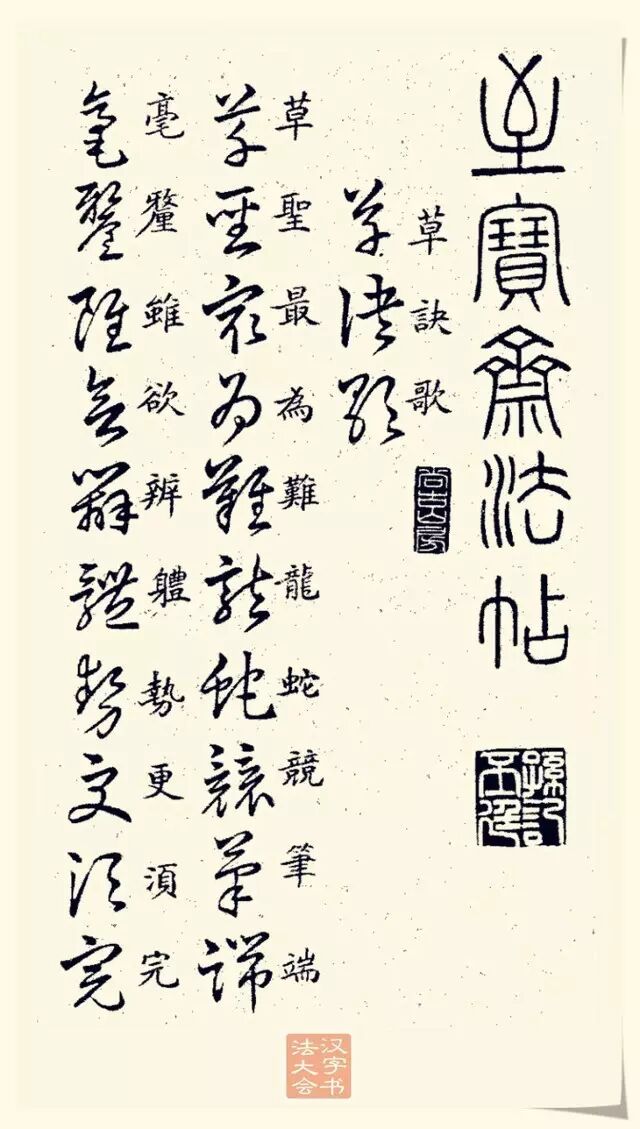 至寶齋法帖
草訣歌
草訣歌
尚古山房
草聖最為難龍蛇競筆端
草聖最為難龍蛇競筆端
毫釐雖欲辨體勢更須完
毫釐雖欲辨體勢更須完
汉字书
法大会